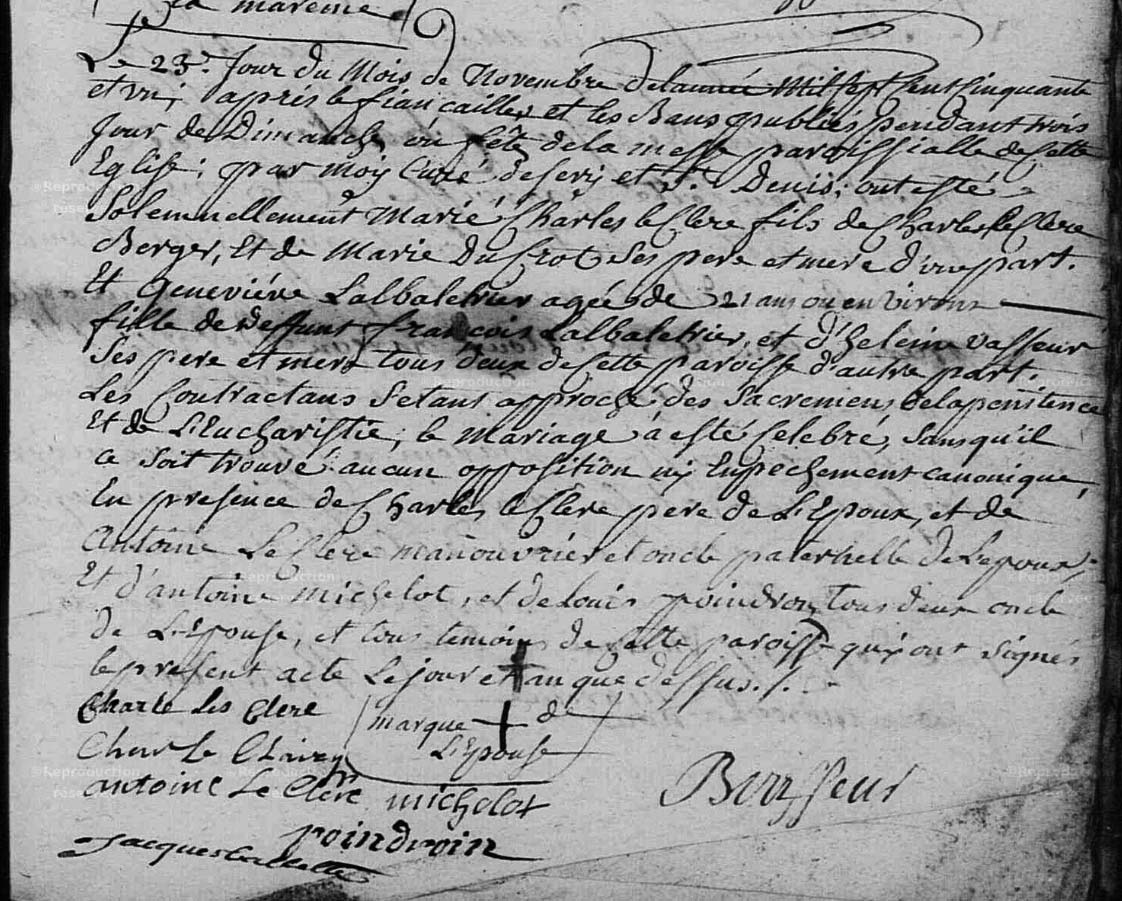 la mareine
Le 23e. Jour du Mois de Novembre delanneé Mil sept Cent Cinquante
et un; aprés le fiançailles et les Bans publiés pendant trois
Jour de Dimanche ou fête de la messe paroissialle de Cette
Eglise; par moy Curé de seri et St. Denis; ont esté
Solemnellement Marié Charles le Clere fils de Charles le Clere
Berger, Et de Marie DuCrot Ses pere et mere d'une part.
Et Geneviéve Lalbaletrier ageé de 21 ans ou environs
fille de deffunt françois Lalbaletrier, et d'helein vasseur
Ses pere et mere tous deux de Cette paroisse d'autre part.
Les Contractans S'etant approché des Sacremens de la penitence
Et de L'Eucharistie; le Mariage à esté Celebré, Sans qu'il
ce soit trouvé aucun opposition ny Enpechement canonique,
En presence de Charles le Clere pere de L'Epoux, et de
Antoine Le Clere manouvrier et oncle paternelle de Lepoux,
Et d'antoine michelot, et de Louis poindron, tous deux oncle
de L'Epouse, et tous temoins de Cette paroisse quy ont signes
le present acte Le jour et an que dessus./.
Charle les Clere marque de
Le L'Epouse
antoine Le Clere michelot
poindroin
Jacques